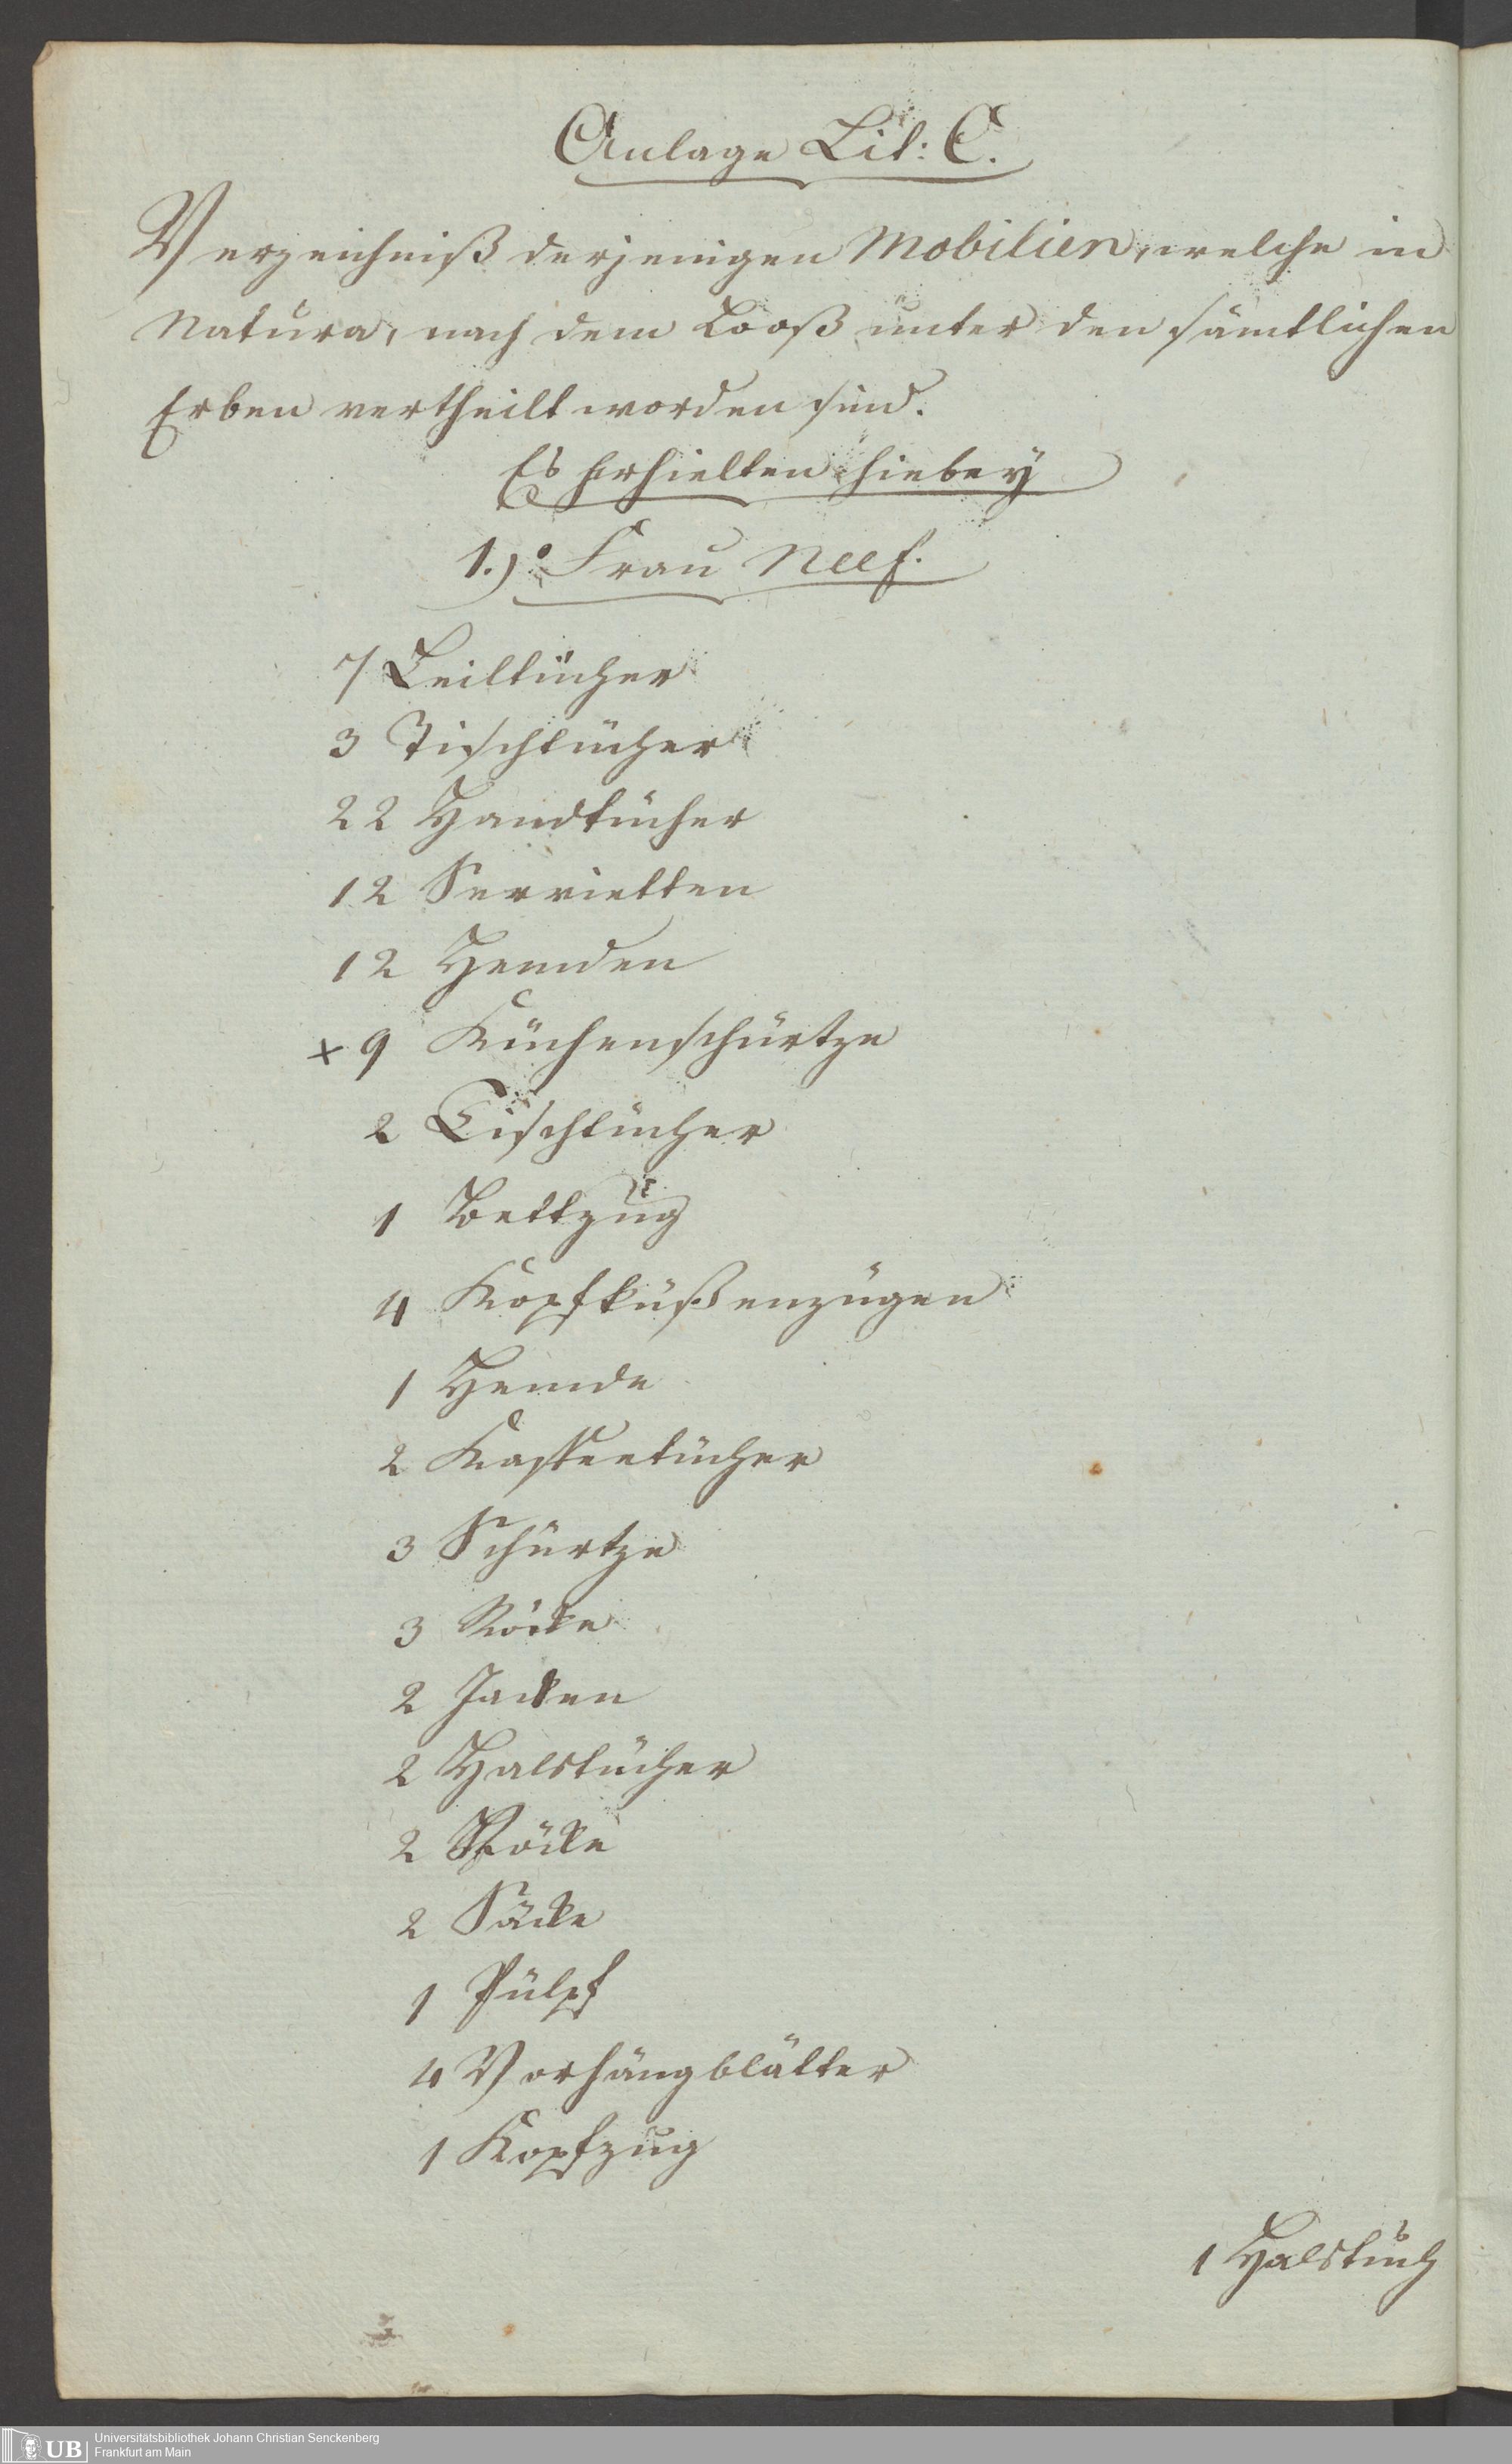 Anlage Lit: C.
Verzeichniß derjenigen Mobilien, welche in
Natura, nach dem Looß unter den sämtlichen
Erben vertheilt worden sind.
Es Erhielten hiebey
1.)° Frau Neef.
7 Leiltücher
3 Tischtücher
22 Handtücher
12 Servietten
12 Hemden
x 9 Küchenschürtze
2 Tischtücher
1 Bettzug
4 Kopfküßenzügen
1 Hemde
2 Kasteetücher
3 Schürtze
3 Röcke
2 Jacken
2 Halstücher
2 Röcke
2 Säcke
1 Pülpf
4 Vorhängblätter
1 Kopfzug
1 Halstuch
UB
Universitätsbibliothek Johann Christian Senckenberg
Frankfurt am Main